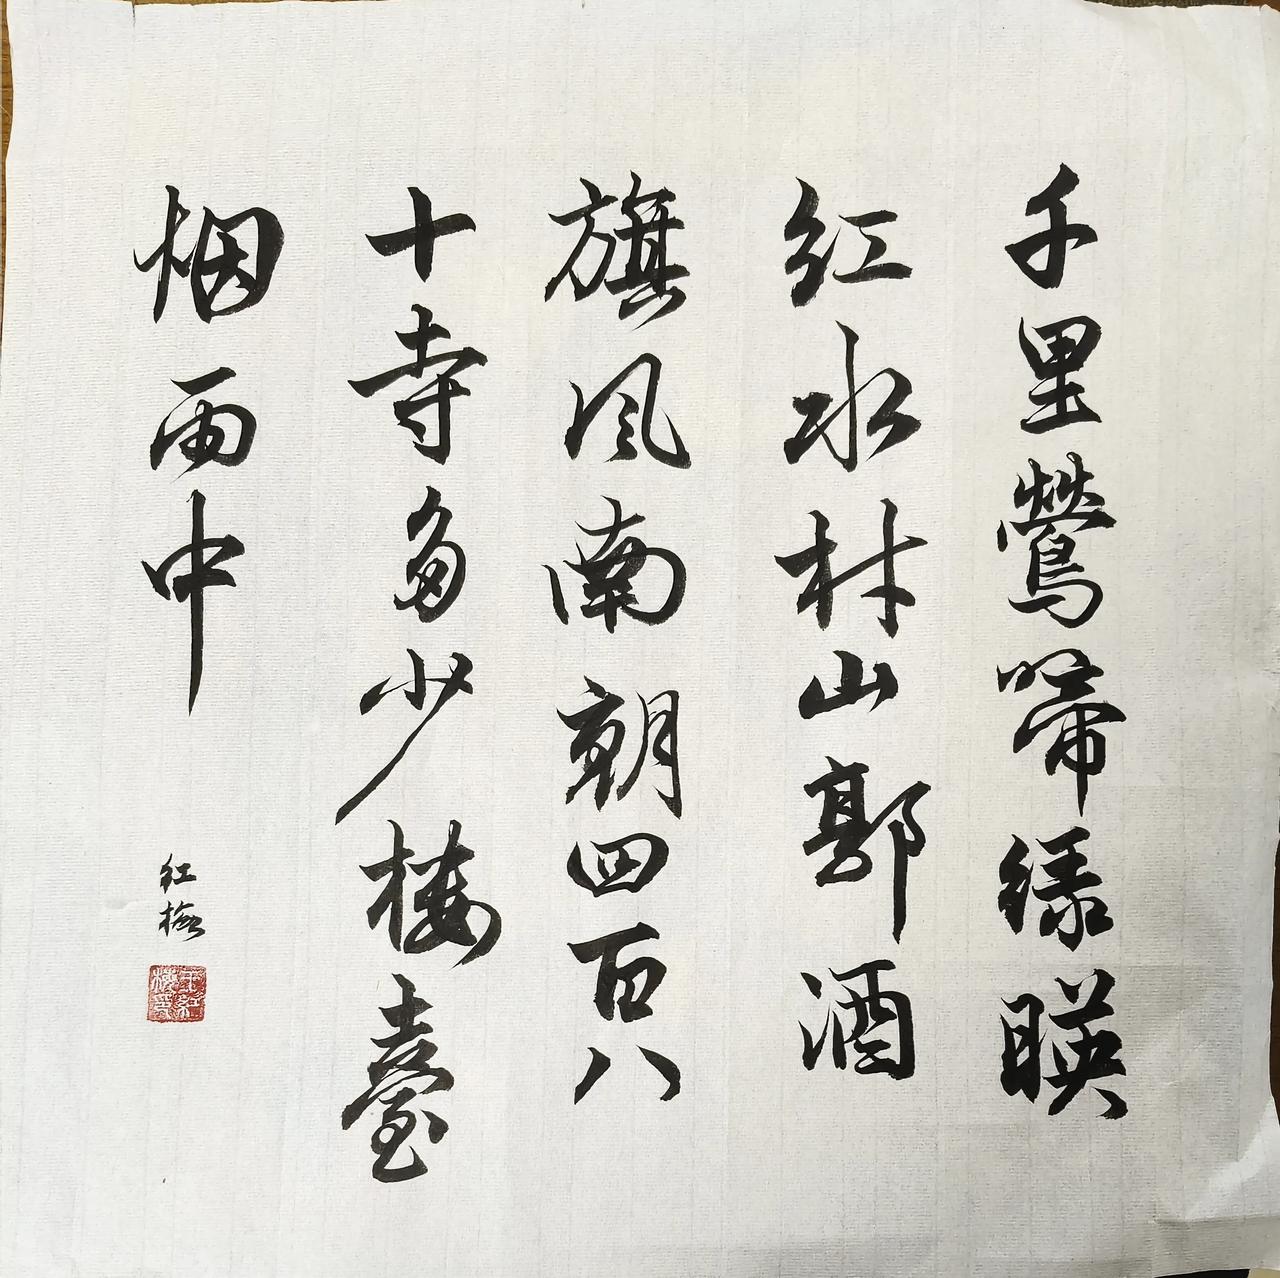 千里鶯啼绿暎
红水村山郭酒
旗风南朝四百八
十寺多少楼臺
烟雨中
红梅